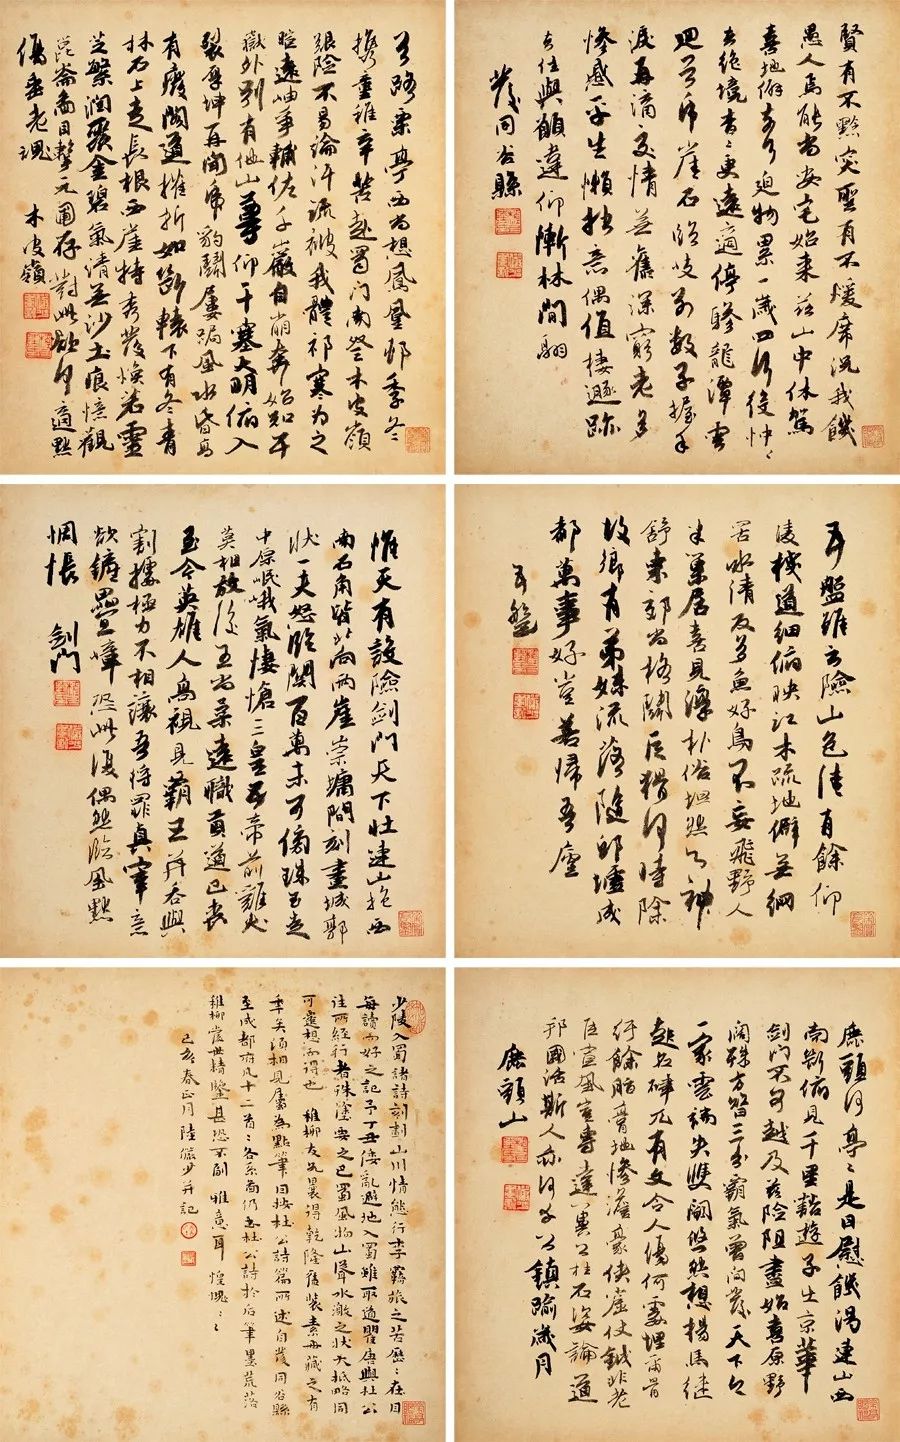 賢有不黔突聖有不煖席況我饑
愚人焉能尚安宅始來茲山中休駕
喜地僻奈何迫物累一歲四行役忡〻
去絕境杳〻更遠適停驂龍潭雲
迴首虎崖石臨歧別數子握手
淚再滴交情無舊深窮老多
慘慼平生懶拙意偶值棲遯跡
去住與願違仰慚林間翮
發同谷縣
首路栗亭西尚想鳳凰邨季冬
攜童稚辛苦赴蜀門南登木皮嶺
艱險不易論汗流被我體祁寒為之
暄遠岫爭輔佐千巖自崩奔始知五
嶽外別有他山尊仰干塞大明俯入
裂厚坤再聞虎豹鬭屢跼風水昏高
有廢閣道摧折如斷轅下有冬青
林石上走長根西崖特秀發煥若靈
芝繁潤聚金碧氣清無沙土痕憶觀
崑崙圖目擊元圃存對此欲何適默
傷垂老魂 木皮嶺
五盤雖云險山色佳有餘仰
凌棧道細俯映江木疏地僻無網
罟水清反多魚好鳥不妄飛野人
半巢居喜見淳朴俗坦然心神
舒東郊尚格鬭巨猾何時除
故鄉有弟妹流落隨邱墟成
都萬事好豈若歸吾廬
五盤
惟天有設險劍門天下壯連山抱西
南石角皆北向兩崖崇墉倚刻畫城郭
狀一夫怒臨關百萬未可傍珠玉走
中原岷峨氣悽愴三皇五帝前雞犬
莫相放後王尚柔遠職貢道已喪
至今英雄人高視見霸王并吞與
割據極力不相讓吾將罪真宰意
欲鏟疊嶂恐此復偶然臨風默
惆悵 劍門
鹿頭何亭〻是日慰饑渴連山西
南斷俯見千里豁遊子出京華
劍門不可越及茲險阻盡始喜原野
闊殊方昔三分霸氣曾間發天下今
一家雲端失雙闕悠然想楊馬繼
起名硉兀有文令人傷何處埋爾骨
紆餘脂膏地慘澹豪俠窟仗鉞非老
臣宣風豈專達冀公柱石姿論道
邦國活斯人亦何幸公鎮踰歲月
鹿頭山
少陵入蜀諸詩刻劃山川情態行李羈旅之苦歷〻在目
每讀而好之記予丁丑倭亂避地入蜀雖取道瞿唐與杜公
往所經行者殊塗要之巴蜀風物山聳水激之狀大抵略同
可遙想而得也 稚柳友兄曩得乾隆舊裝素冊藏之有
年矣須相見屬為點筆因按杜公詩篇所述自發同谷縣
至成都府凡十二首〻各系圖仍書杜公詩於后筆墨荒落
稚柳當世精鑒甚恐不副 雅意耳 惶愧〻〻
己亥春正月 陸儼少并記